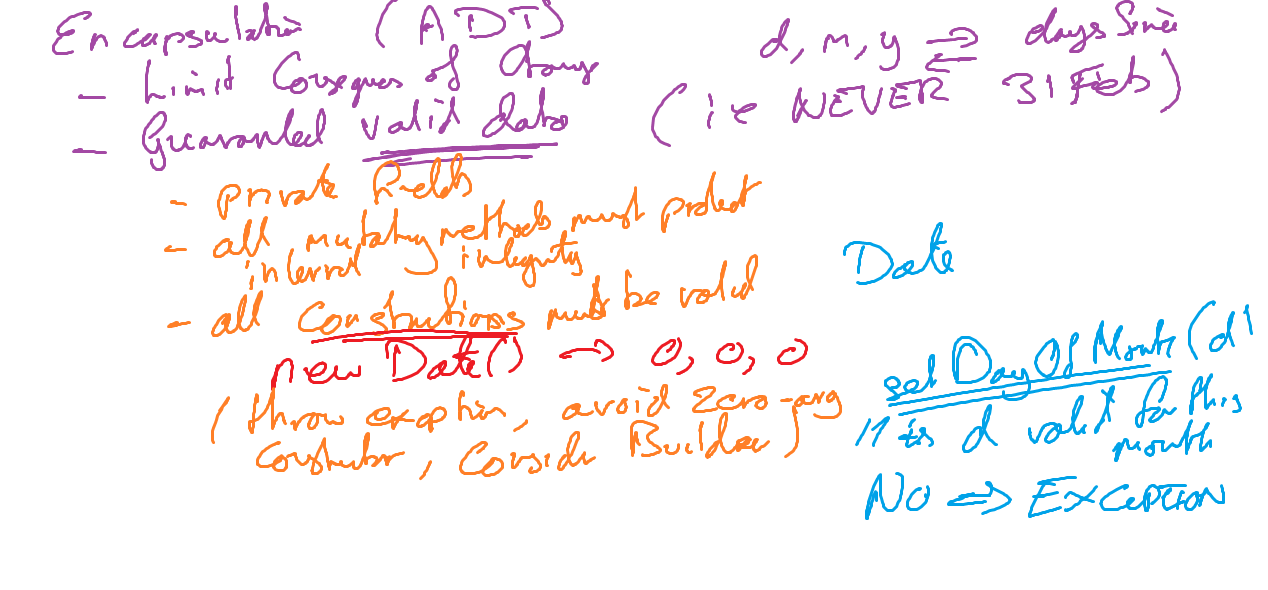 Encapsulation (ADT)
- Limit Consequences of Change
- Guaranteed valid data
d, m, y ⇌ days Since
(ie NEVER 31 Feb)
- private fields
- all mutating methods must protect
internal integrity
- all Constructions must be valid
new Date() → 0, 0, 0
(throw exception, avoid zero-arg
constructor, Consider Builder)
Date
set DayOf Month (d)
// is d valid for this
month
NO => EXCEPTION